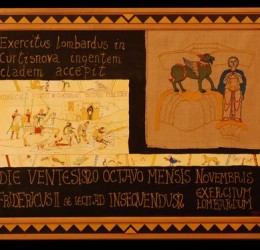 Exercitus lombardus in
Curtisnova ingentem
cladem accepit
DIE VENTESIMO OCTAVO MENSIS NOVEMBRIS
FRIDERICUS II SE FECIT AD INSEQUENDUM
EXERCITUM
LOMBARDUM